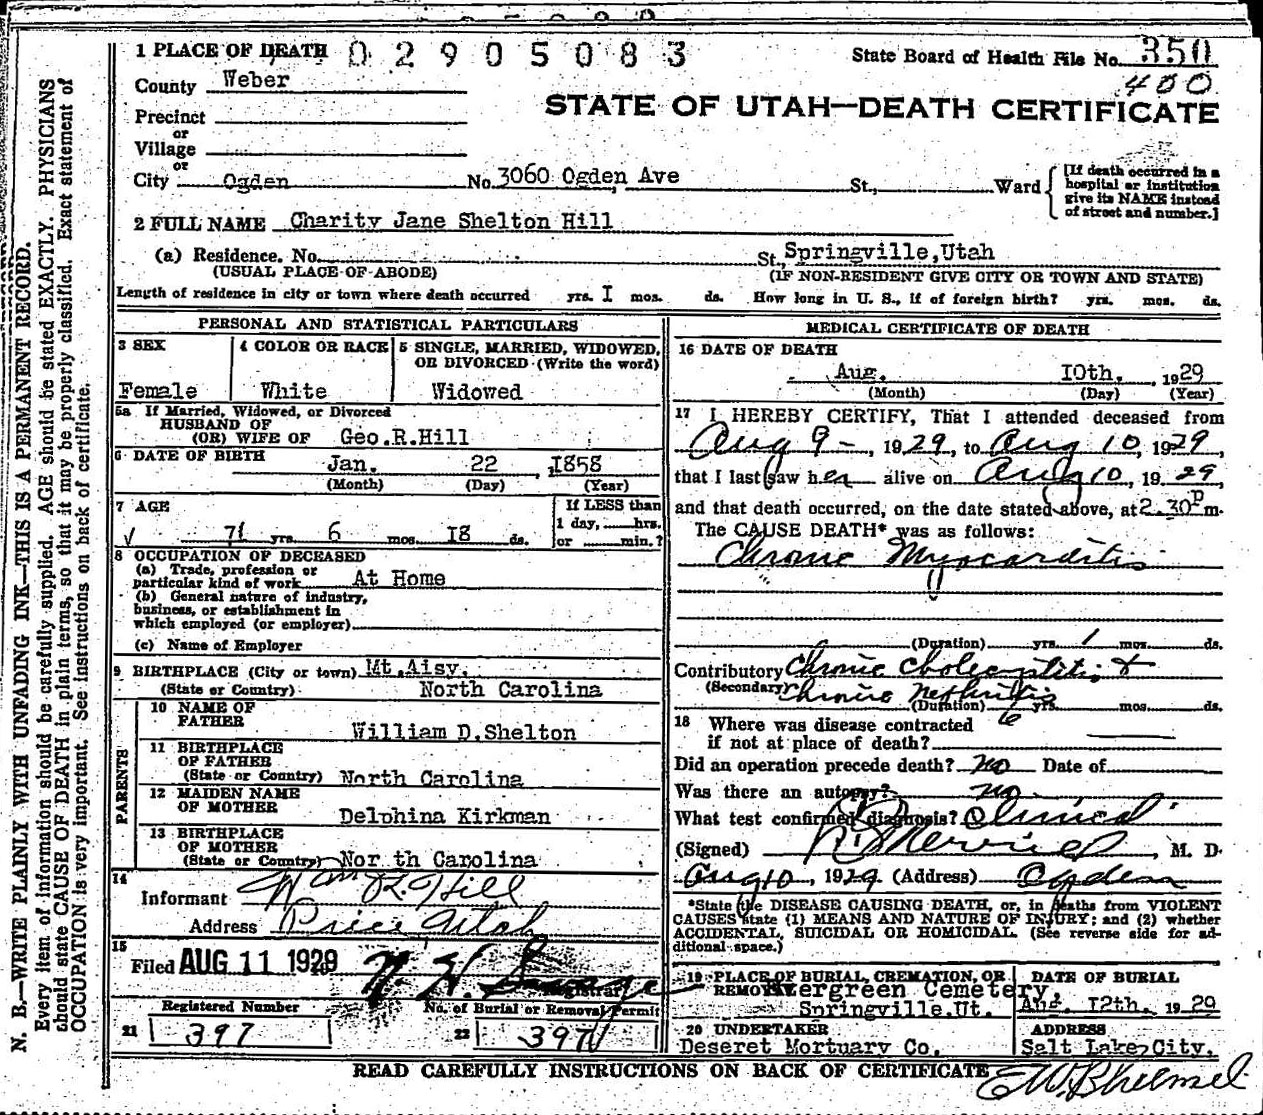 1 PLACE OF DEATH 02905083 State Board of Health File No. 350
County Weber 400
STATE OF UTAH—DEATH CERTIFICATE
Precinct
or
Village
or
City Ogden No. 3060 Ogden Ave St., Ward
[If death occurred in a hospital or institution give its NAME instead of street and number.]
2 FULL NAME Charity Jane Shelton Hill
(a) Residence. No. St., Springville, Utah
(USUAL PLACE OF ABODE) (IF NON-RESIDENT GIVE CITY OR TOWN AND STATE)
Length of residence in city or town where death occurred yrs. I mos. ds. How long in U. S., if of foreign birth? yrs. mos. ds.
PERSONAL AND STATISTICAL PARTICULARS
3 SEX 4 COLOR OR RACE 5 SINGLE, MARRIED, WIDOWED, OR DIVORCED (Write the word)
Female White Widowed
5a If Married, Widowed, or Divorced
HUSBAND OF
(OR) WIFE OF Geo.R.Hill
6 DATE OF BIRTH Jan. 22 ,1858
(Month) (Day) (Year)
7 AGE If LESS than
1 day, hrs.
71 yrs. 6 mos. I8 ds. or min.?
8 OCCUPATION OF DECEASED
(a) Trade, profession or
particular kind of work At Home
(b) General nature of industry,
business, or establishment in
which employed (or employer)
(c) Name of Employer
9 BIRTHPLACE (City or town) Mt.Aisy.
(State or Country) North Carolina
PARENTS
10 NAME OF
FATHER William D.Shelton
11 BIRTHPLACE
OF FATHER
(State or Country) North Carolina
12 MAIDEN NAME
OF MOTHER Delphina Kirkman
13 BIRTHPLACE
OF MOTHER
(State or Country) Nor th Carolina
14
Informant Wm R. Hill
Address Price Utah
15
Filed AUG 11 1929
Registrar
Registered Number No. of Burial or Removal Permit
21 397 22 397
MEDICAL CERTIFICATE OF DEATH
16 DATE OF DEATH
Aug. I0th. , 1929
(Month) (Day) (Year)
17 I HEREBY CERTIFY, That I attended deceased from
Aug 9 - , 1929, to Aug 10, 1929,
that I last saw her alive on Aug 10, 1929
and that death occurred, on the date stated above, at 2.30 P m.
The CAUSE DEATH* was as follows:
Chronic Myocarditis
(Duration) yrs. 1 mos. ds.
Contributory Chronic Cholecystitis +
(Secondary) Chronic Nephritis
(Duration) 6 yrs. mos. ds.
18 Where was disease contracted
if not at place of death?
Did an operation precede death? no Date of
Was there an autopsy? no
What test confirmed diagnosis? Clinical
(Signed) , M. D.
Aug 10, 1929 (Address) Ogden
*State the DISEASE CAUSING DEATH, or, in deaths from VIOLENT
CAUSES state (1) MEANS AND NATURE OF INJURY; and (2) whether
ACCIDENTAL, SUICIDAL OR HOMICIDAL. (See reverse side for ad-
ditional space.)
19 PLACE OF BURIAL, CREMATION, OR DATE OF BURIAL
REMOVAL Evergreen Cemetery
Springville.Ut. Aug. I2th. 1929
20 UNDERTAKER ADDRESS
Deseret Mortuary Co. Salt Lake City.
READ CAREFULLY INSTRUCTIONS ON BACK OF CERTIFICATE
N. B.—WRITE PLAINLY WITH UNFADING INK—THIS IS A PERMANENT RECORD.
Every item of information should be carefully supplied. AGE should be stated EXACTLY. PHYSICIANS
should state CAUSE OF DEATH in plain terms, so that it may be properly classified. Exact statement of
OCCUPATION is very important. See instructions on back of certificate.